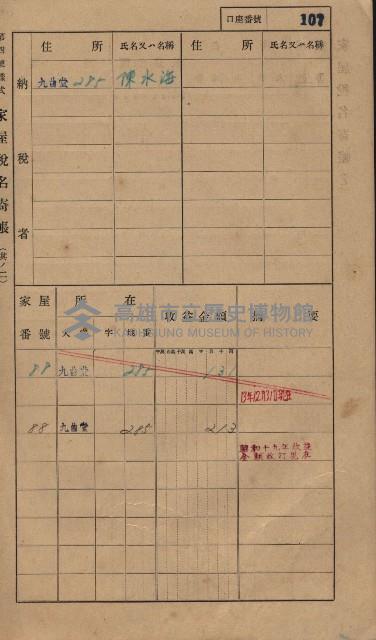 口座番號 107
第四號樣式 家屋稅名寄帳(其ノ一)
納稅者
住所 氏名又ハ名稱 住所 氏名又ハ名稱
九曲堂 285 陳水海
家屋番號 所在 收益金額 摘要
大字 地番
高雄市立歷史博物館
KAOHSIUNG MUSEUM OF HISTORY
88 九曲堂 285 131
13年12月31日現在
88 九曲堂 285 213
昭和十九年改